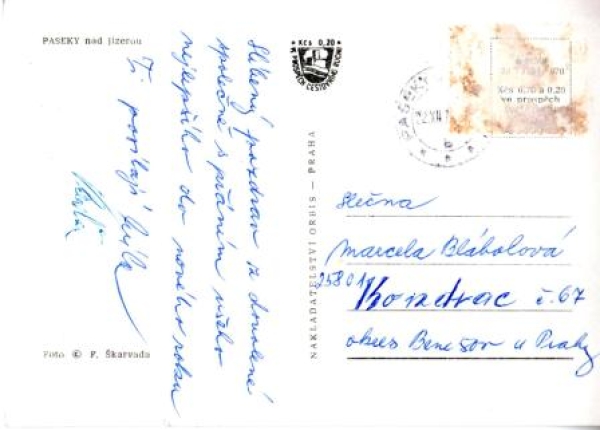 PASEKY nad Jizerou
Kčs 0,20
V PROSPĚCH ČESTSKÉ
Slíbený pozdrav z dovolené
společně s přáním všeho
nejlepšího do nového roku
Ti posílají Míla
Foto © F. Škarvada
NAKLADATELSTVÍ ORBIS — PRAHA
PASEKY
22.XII.
Kčs 0,70 a 0,20
ve prospěch
Slečna
Marcela Blábolová
25801 Kondrac č. 67
okres Benešov u Prahy